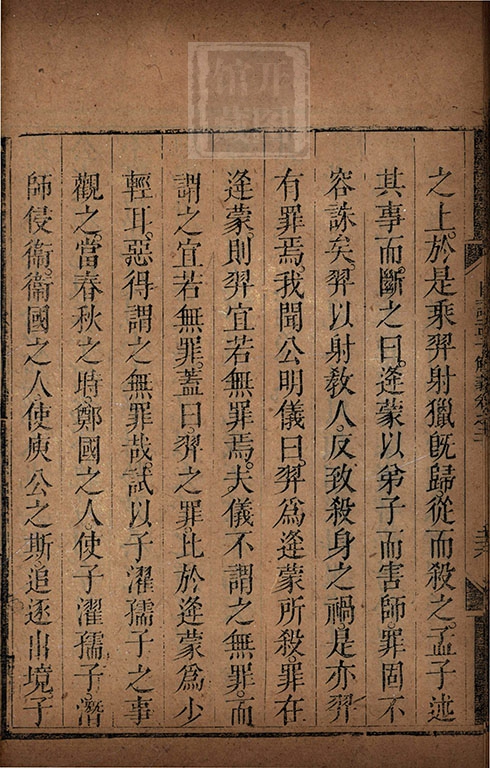 之上。於是乘羿射獵旣歸。從而殺之。孟子述
其事而斷之曰。逢蒙以弟子而害師。罪固不
容誅矣。羿以射敎人。反致殺身之禍。是亦羿
有罪焉。我聞公明儀曰。羿爲逢蒙所殺。罪在
逢蒙。則羿宜若無罪焉。夫儀不謂之無罪。而
謂之宜若無罪。蓋曰。羿之罪。比於逢蒙爲少
輕耳。惡得謂之無罪哉。試以子濯孺子之事
觀之。當春秋之時。鄭國之人。使子濯孺子。潛
師侵衞。衞國之人。使庾公之斯。追逐出境。子